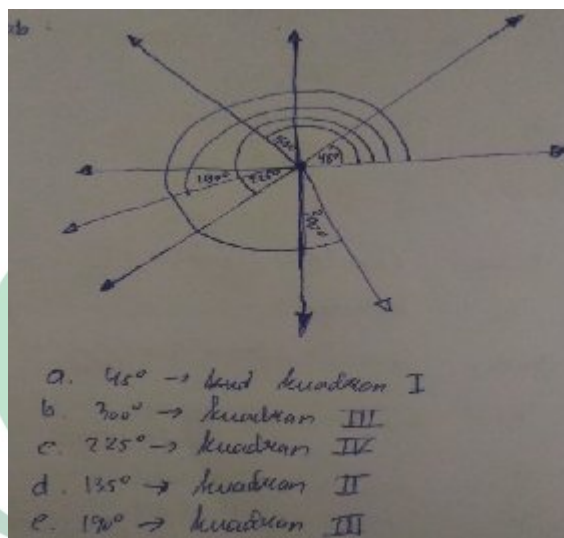 45°
225°
190°
300°
a. 45° → kuadran I
b. 300° → kuadran III
c. 225° → kuadran IV
d. 135° → kuadran II
e. 190° → kuadran III